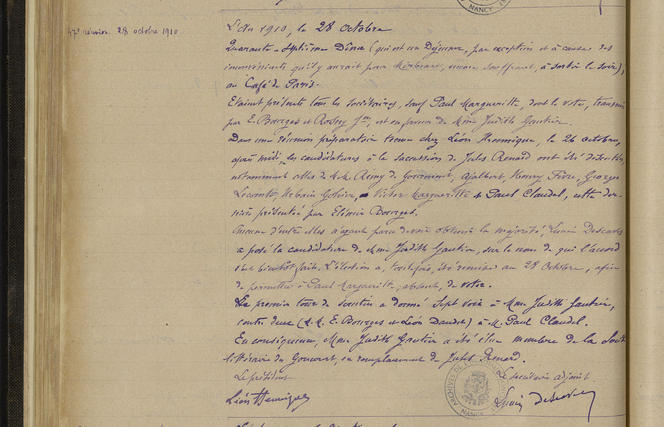 NANCY
47e réunion. 28 octobre 1910
L'An 1910, le 28 octobre
Quarante-Septième Dîner (qui est un Déjeuner, par exception et à cause des
inconvénients qu'il y aurait pour Mirbeau, encore souffrant, à sortir le soir),
au Café de Paris.
Etaient présents tous les sociétaires, sauf Paul Margueritte, dont le vote, transmis
par E. Bourges et Rosny Jne, est en faveur de Mme Judith Gautier.
Dans une réunion préparatoire tenue chez Léon Hennique, le 26 octobre,
après midi, les candidatures à la succession de Jules Renard ont été discutées,
notamment celles de M.M. Remy de Gourmont, Ajalbert, Henry Fèvre, Georges
Lecomte, Urbain Gohier, Victor Margueritte & Paul Claudel, cette der-
nière présentée par Elémir Bourges.
Aucune d'entre elles n'ayant paru devoir obtenir la majorité, Lucien Descaves
a posé la candidature de Mme Judith Gautier, sur le nom de qui l'accord
s'est bientôt fait. L'élection a, toutefois, été remise au 28 octobre, afin
de permettre à Paul Margueritte, absent, de voter.
Le premier tour de scrutin a donné sept voix à Mme Judith Gautier,
contre deux (M.M. E. Bourges et Léon Daudet) à M. Paul Claudel.
En conséquence, Mme Judith Gautier a été élue membre de la Société
littéraire des Goncourt, en remplacement de Jules Renard.
Le président
Le secrétaire adjoint
Léon Hennique
Lucien Descaves
ARCHIVES DE
NANCY